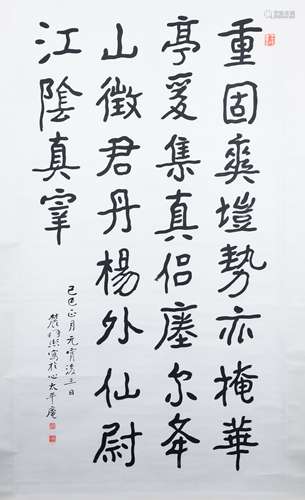 重固爽塏勢亦掩華
亭爰集真侶瘞尔夅
山徵君丹楊外仙尉
江陰真宰
己巳正月元宵後三日
寫於心太平庵